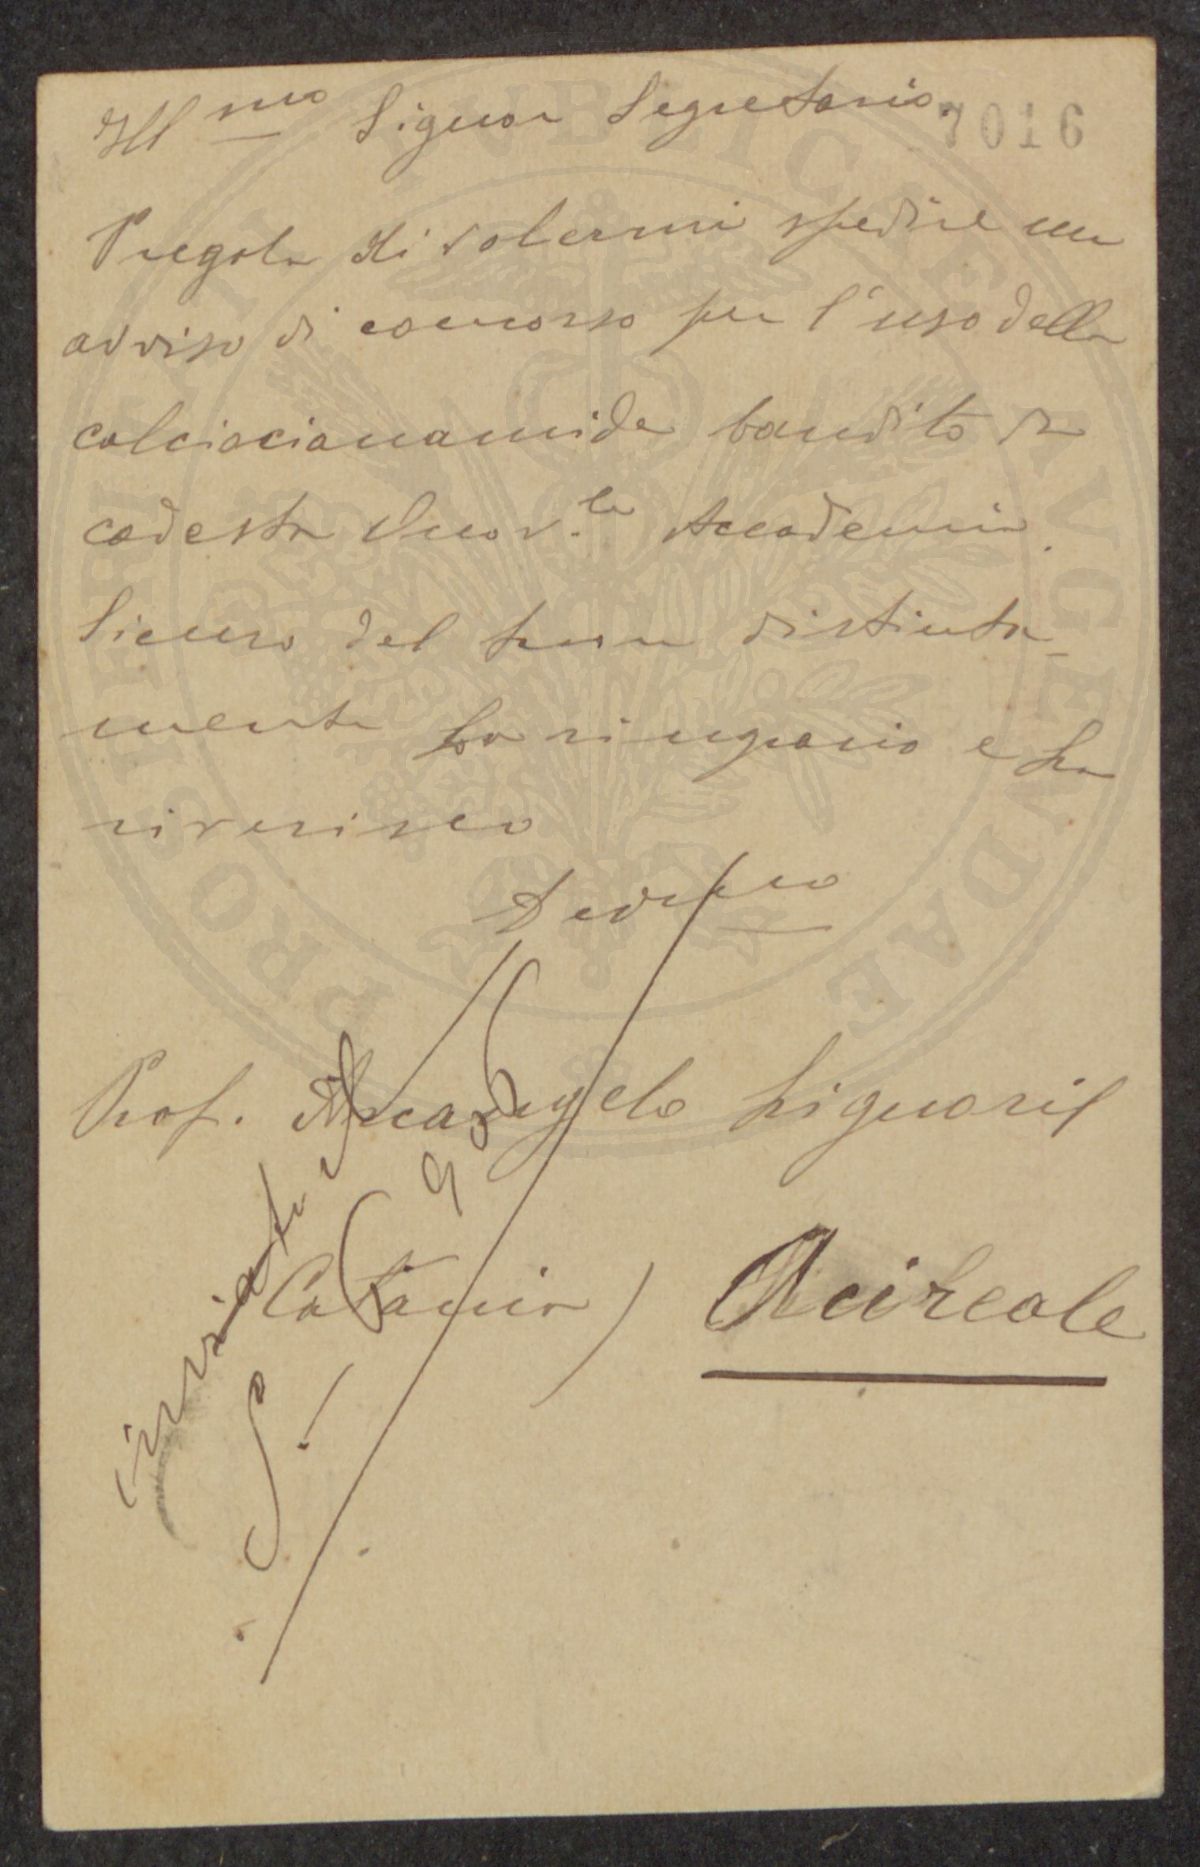 Ill mo Signor Segretario
7016
Pregola di volermi spedire un
avviso di concorso per l'uso della
calciocianamide bandito da
codesta Onov.le Accademia.
Sicuro del favor distinta-
mente La ringrazio e La
riverisco
Devmo
Prof. Arcangelo Liguori
(Catania) Acireale
inviato
PVBLICAE AVGENDAE
PROSPERITATI